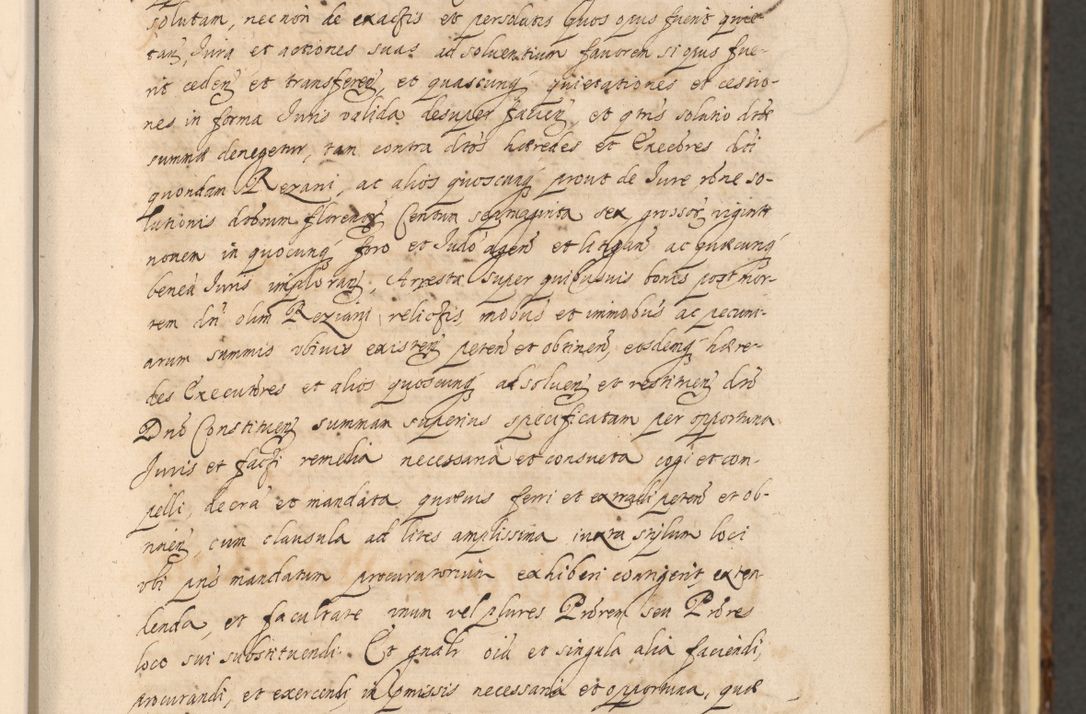 solutam, necnon de exactis et persolutis quos opus fuerit quie-
tan̄, Jura et actiones suas ad soluentium fauorem si opus fue-
rit ceden̄ et transferen̄, et quascunq́ quietationes et cessio-
nes in forma Juris valida desuper facien̄, et qtñs solutio dctæ
summæ denegetur, tam contra dtos hæredes et Exectores dti
quondam Reziani, ac alios quoscunq́ prout de Jure rõne so-
lutionis dctorum florenor Centum septuaginta sex grossor viginti
nouem in quocunq́ foro et Judo agen̄ et litigan̄ ac quæcunq́
benea Juris imploran̄, Arresta super quibusuis bonis post mor-
tem dti olim Reziani relictis mobus et immobus ac pecuni-
arum summis vbiuis existen̄ peten̄ et obtinen̄, eosdemq́ hære-
des Executores et alios quoscunq́ ad soluen̄ et restituen̄ dto
Dno Constituen̄ summam superius specificatam per opportuna
Juris et facti remedia necessaria et consueta cogi et com-
pelli, decra et mandata quæuis ferri et extradi peten̄ et ob-
tinen̄, cum clausula ad lites amplissima iuxta stylum loci
vbi pñs mandatum procuratorium exhiberi contigerit exten-
denda, et facultate vnum vel plures Prõrem seu Prõres
loco sui substituendi. Et gnalr oia et singula alia faciendi,
procurandi, et exercendi, in præmissis necessaria et opportuna, quæ